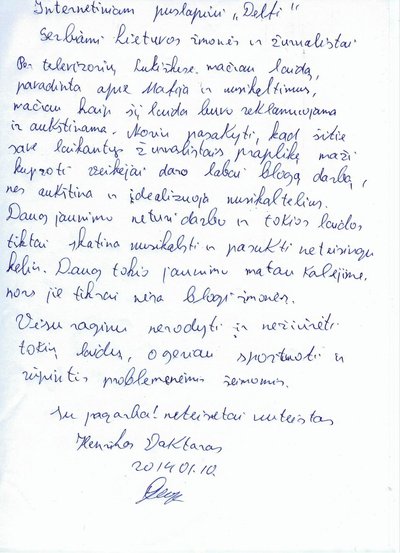 Internetiniam puslapiui „Delfi“
Gerbiami Lietuvos žmonės ir žurnalistai
Per televizorių Lukiškėse mačiau laidą,
pavadinta apie Mafija ir nusikaltimus,
mačiau kaip ši laida buvo reklamuojama
ir aukštinama. Noriu pasakyti, kad šitie
save laikantys žurnalistais praplikę maži
kuproti veikėjai daro labai blogą darbą,
nes aukština ir idealizuoja nusikaltelius.
Daug jaunimo neturi darbo ir tokios laidos
tiktai skatina nusikalsti ir pasukti neteisingu
keliu. Daug tokio jaunimo matau kalėjime,
nors jie tikrai nėra blogi žmonės.
Visu raginu nerodyti ir nežiūrėti
tokių laidų, o geriau sportuoti ir
rūpintis probleminėmis šeimomis.
Su pagarba! neteisėtai nuteistas
Henrikas Daktaras
2014.01.10.